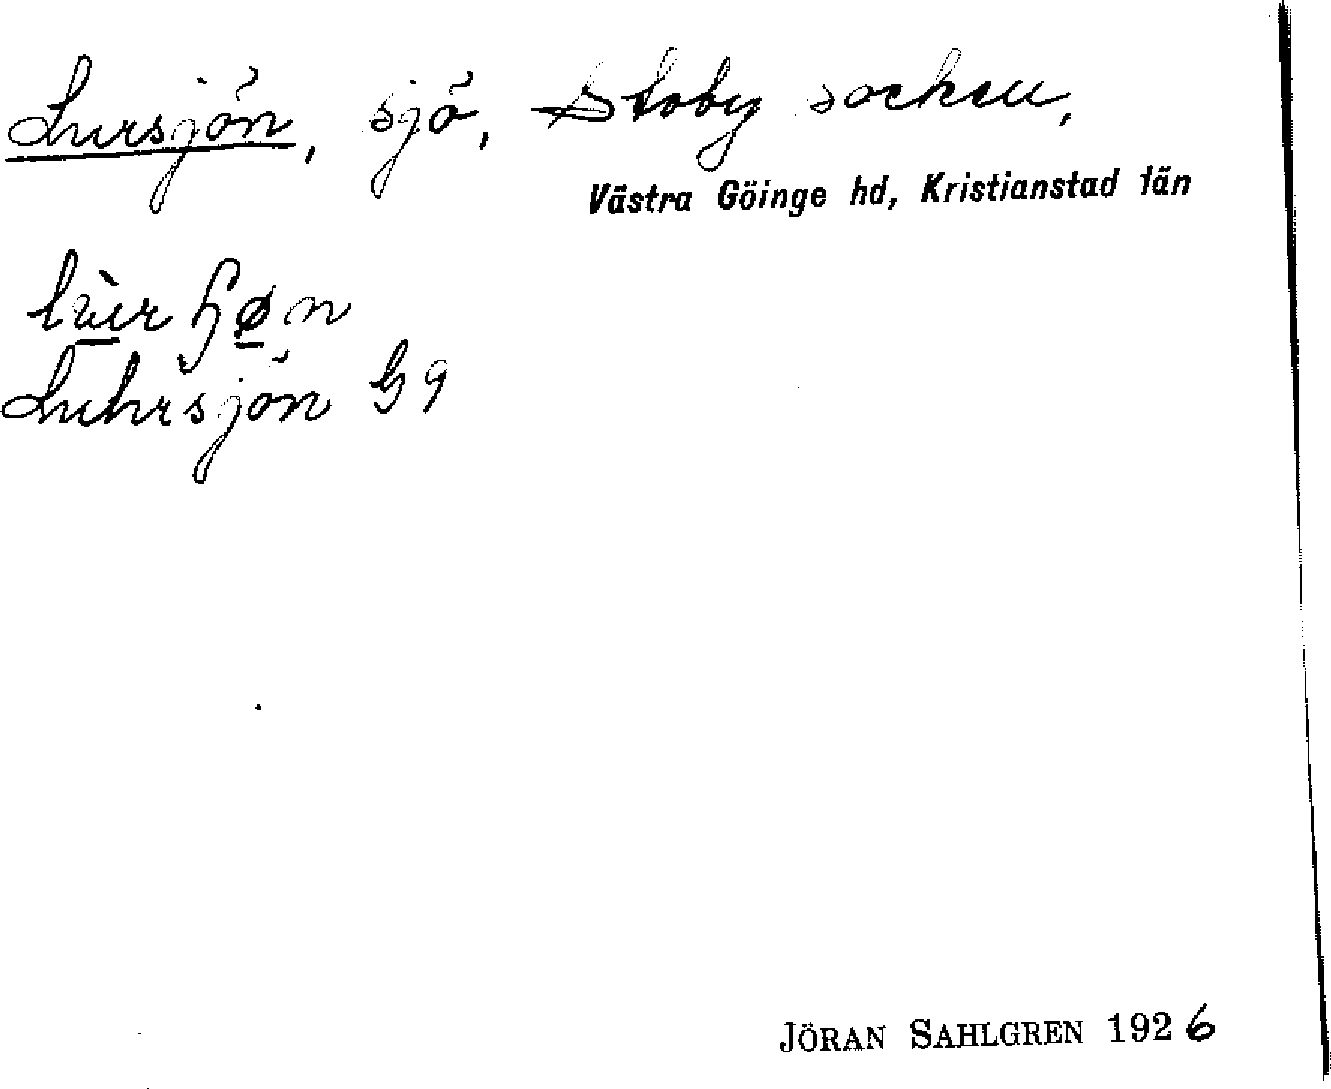 Lursjön, sjö, Stoby socken,
Västra Göinge hd, Kristianstad län
Luhrsjön G 9
JÖRAN SAHLGREN 1926